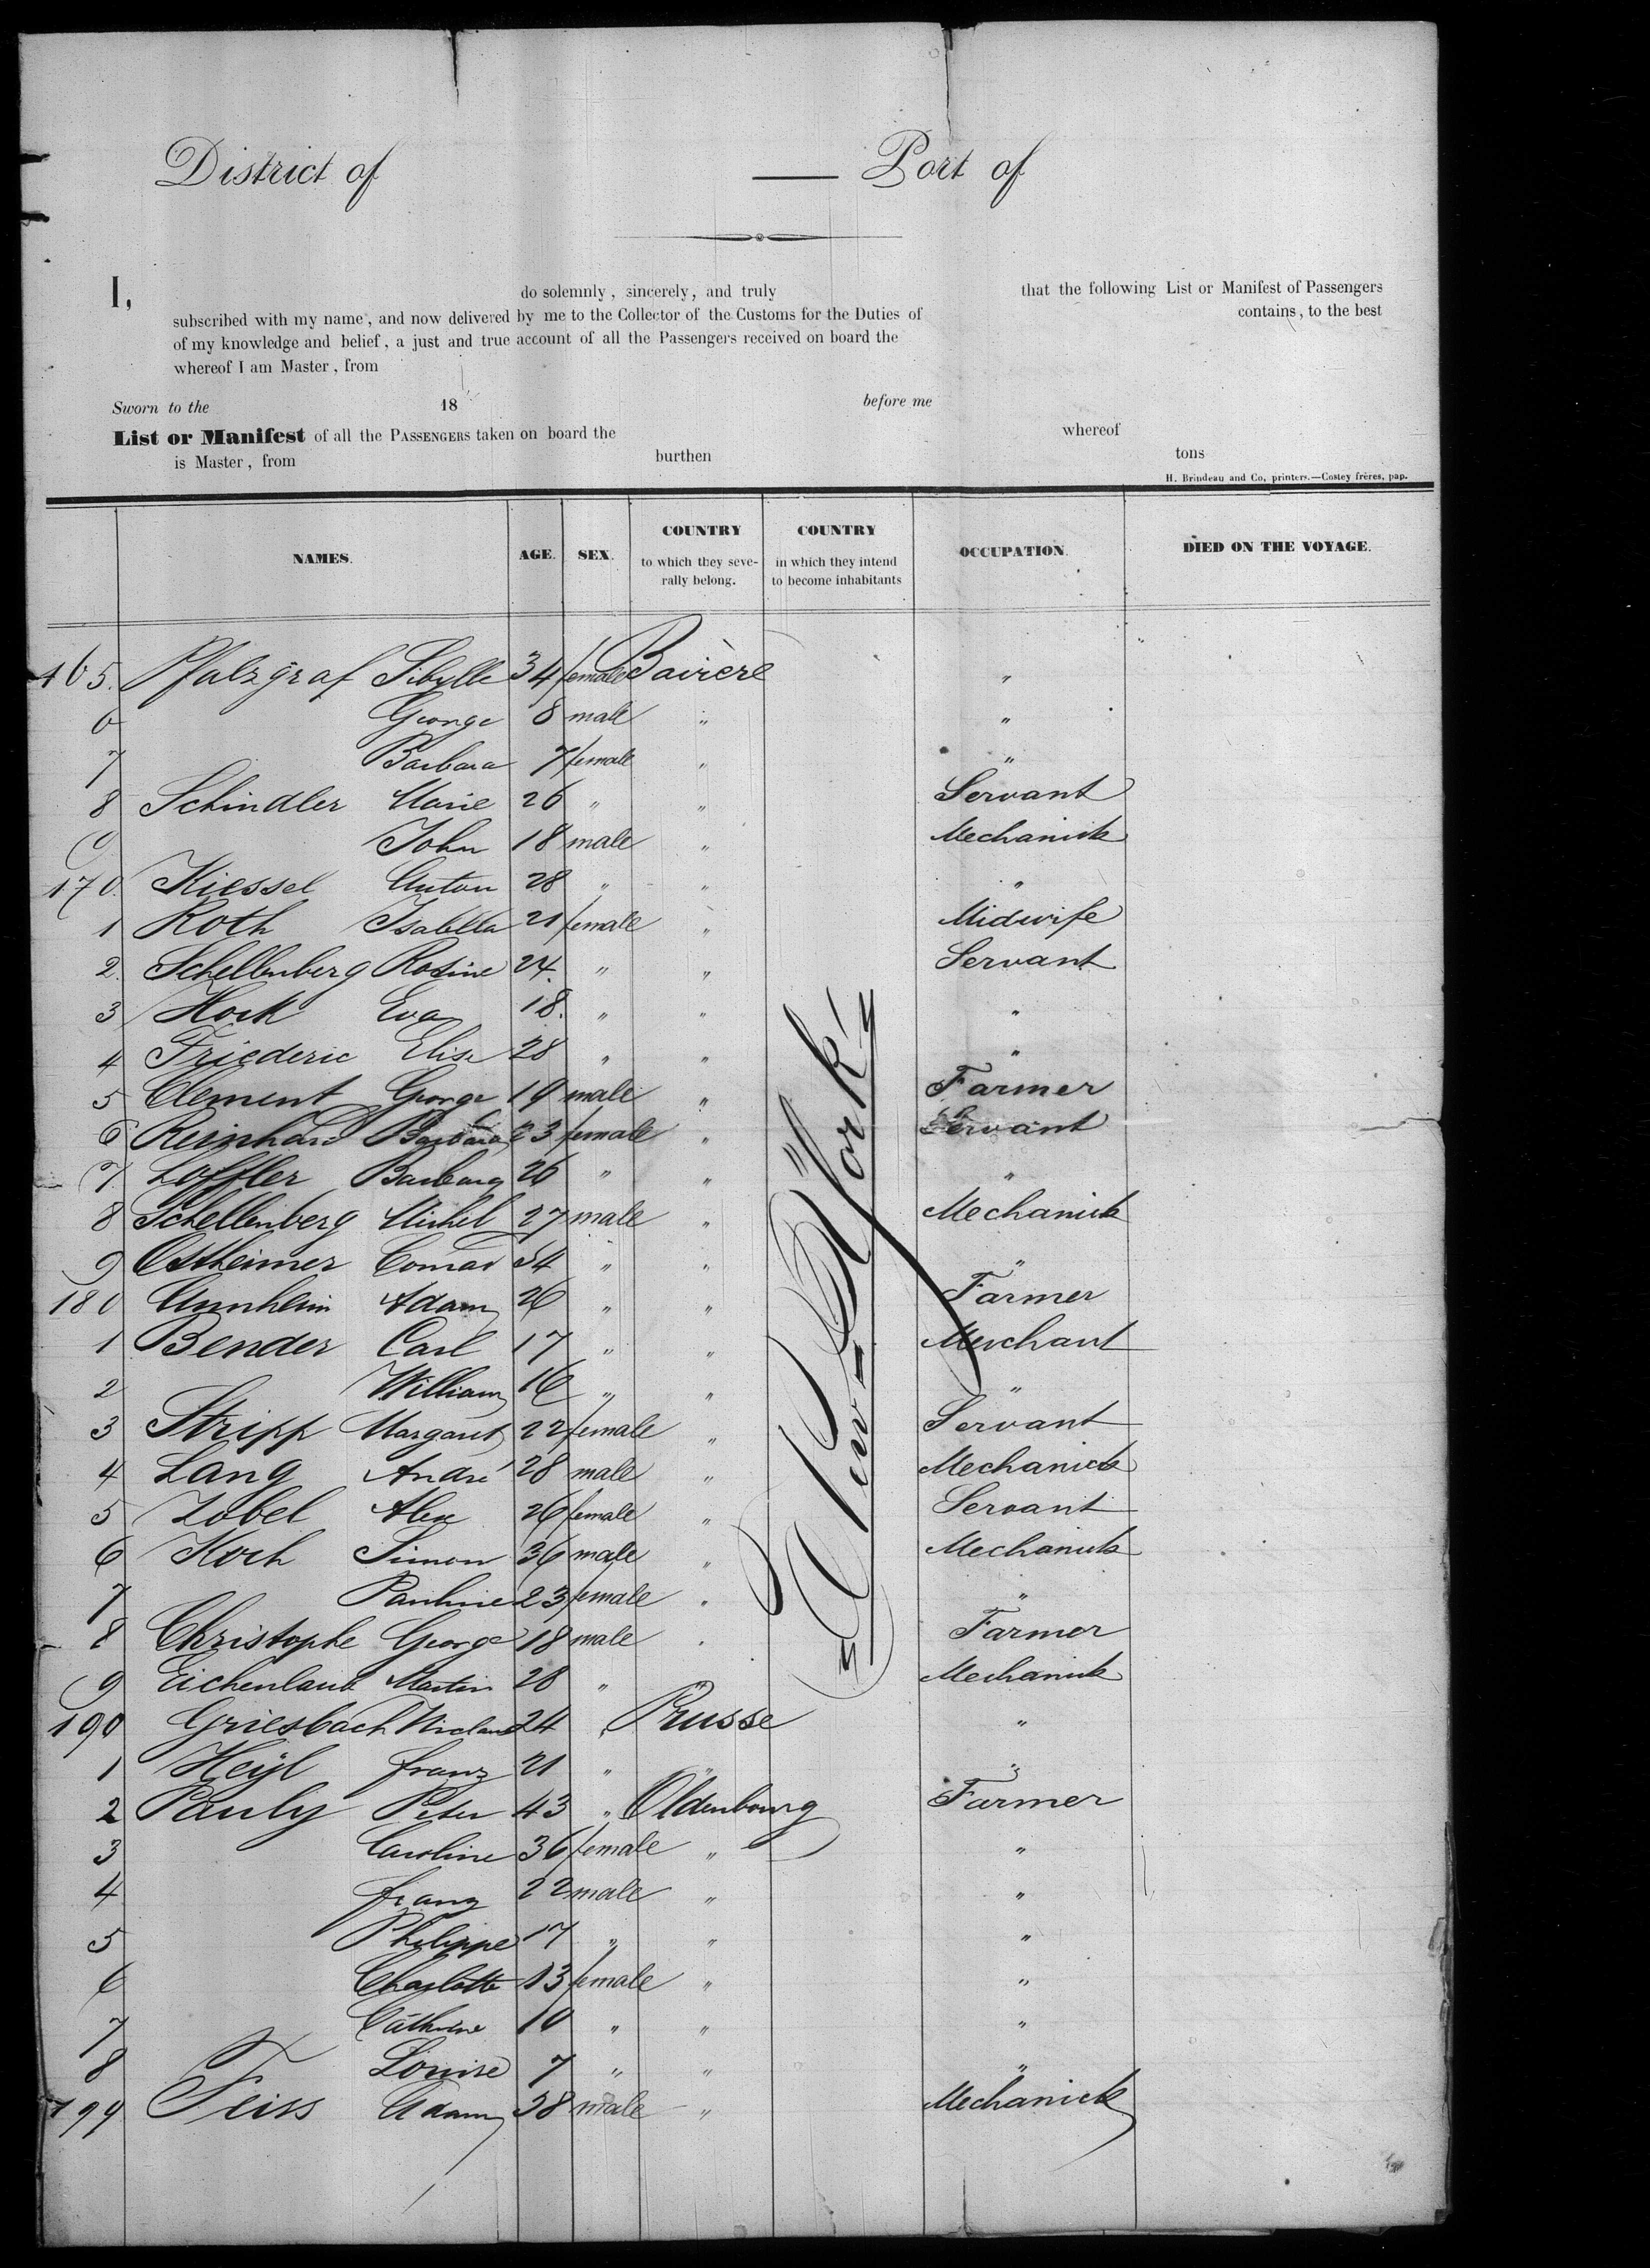 District of — Port of
I, do solemnly, sincerely, and truly that the following List or Manifest of Passengers
subscribed with my name, and now delivered by me to the Collector of the Customs for the Duties of contains, to the best
of my knowledge and belief, a just and true account of all the Passengers received on board the
whereof I am Master, from
Sworn to the 18 before me
List or Manifest of all the PASSENGERS taken on board the whereof
is Master, from burthen tons
H. Brindeau and Co, printers.—Costey frères, pap.
NAMES. AGE. SEX. COUNTRY to which they seve-rally belong. COUNTRY in which they intend to become inhabitants OCCUPATION. DIED ON THE VOYAGE.
165. Pfalzgraf Sibylle 34 female Bavière "
6 George 8 male " "
7 Barbara 7 female " "
8 Schindler Marie 26 " " Servant
9 John 18 male " Mechanick
170. Kiessel Anton 28 " " "
1 Roth Isabella 21 female " Midwife
2. Schellenberg Rosine 24. " " Servant
3 Hock Eva 18. " " "
4 Friederic Elise 28 " " "
5 Clement George 19 male " Farmer
6 Reinhard Barbara 23 female " Servant
7. Loffler Barbara 26 " " "
8 Schellenberg Michel 27 male " Mechanick
9 Ostheimer Conrad 54 " " "
180 Adam 26 " " Farmer
1 Bender Carl 17 " " Merchant
2 William 16 " " "
3 Stripp Margaret 22 female " Servant
4 Lang André 28 male " Mechanick
5 Zobel 26 female " Servant
6 Koch Simon 36 male " Mechanick
7 Pauline 23 female " "
8 Christophe George 18 male " Farmer
9 Eichenlaub Martin 28 " Mechanick
190 Griesbach Nicolaus 24 " Prusse "
1 Heÿl franz 21 " " "
2 Pauly Peter 43 " Oldenbourg Farmer
3 Caroline 36 female " "
4 franz 22 male " "
5 Philippe 17 " " "
6 Charlotte 13 female " "
7 Cathrine 10 " " "
8 Louise 7 " " "
199 Feiss Adam 38 male " Mechanick
New-York